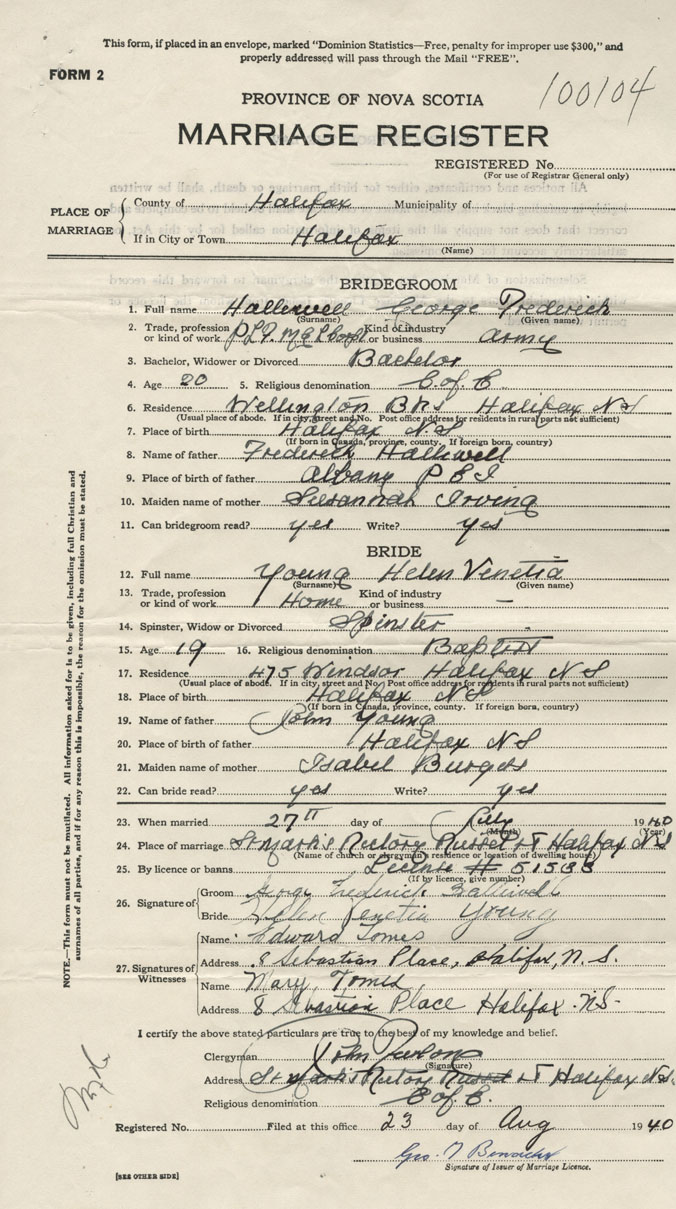 This form, if placed in an envelope, marked "Dominion Statistics—Free, penalty for improper use $300," and
properly addressed will pass through the Mail "FREE".
FORM 2
100104
PROVINCE OF NOVA SCOTIA
MARRIAGE REGISTER
REGISTERED No.
(For use of Registrar General only)
PLACE OF MARRIAGE
County of Halifax Municipality of
If in City or Town Halifax
(Name)
BRIDEGROOM
1. Full name Halliwell George Frederick
(Surname) (Given name)
2. Trade, profession or kind of work Kind of industry or business army
3. Bachelor, Widower or Divorced Bachelor
4. Age 20 5. Religious denomination C. of E.
6. Residence Wellington Bks Halifax NS
(Usual place of abode. If in city, street and No. Post office address for residents in rural parts not sufficient)
7. Place of birth Halifax N.S
(If born in Canada, province, county. If foreign born, country)
8. Name of father Frederick Halliwell
9. Place of birth of father Albany P E I
10. Maiden name of mother Susannah Irving
11. Can bridegroom read? yes Write? yes
BRIDE
12. Full name Young Helen Venetia
(Surname) (Given name)
13. Trade, profession or kind of work Home Kind of industry or business —
14. Spinster, Widow or Divorced Spinster
15. Age 19 16. Religious denomination Baptist
17. Residence 475 Windsor Halifax NS
(Usual place of abode. If in city, street and No. Post office address for residents in rural parts not sufficient)
18. Place of birth Halifax NS
(If born in Canada, province, county. If foreign born, country)
19. Name of father John Young
20. Place of birth of father Halifax NS
21. Maiden name of mother Isabel Burgess
22. Can bride read? yes Write? yes
23. When married 27th day of July 1940
(Month) (Year)
24. Place of marriage St Mark's Rectory Russel St Halifax NS
(Name of church or clergyman's residence or location of dwelling house)
25. By licence or banns License # 51538
(If by licence, give number)
26. Signature of
Groom George Frederick Halliwell
Bride Helen Venetia Young
27. Signatures of Witnesses
Name Edward Tomes
Address 8 Sebastian Place, Halifax, N.S.
Name Mary Tomes
Address 8 Sebastian Place Halifax NS-
I certify the above stated particulars are true to the best of my knowledge and belief.
Clergyman John
(Signature)
Address St Mark's Rectory Russel St Halifax NS.
Religious denomination C of E.
Registered No. Filed at this office 23 day of Aug 1940
Geo.
Signature of Issuer of Marriage Licence.
[SEE OTHER SIDE]
NOTE.—This form must not be mutilated. All information asked for is to be given, including full Christian and
surnames of all parties, and if for any reason this is impossible, the reason for the omission must be stated.